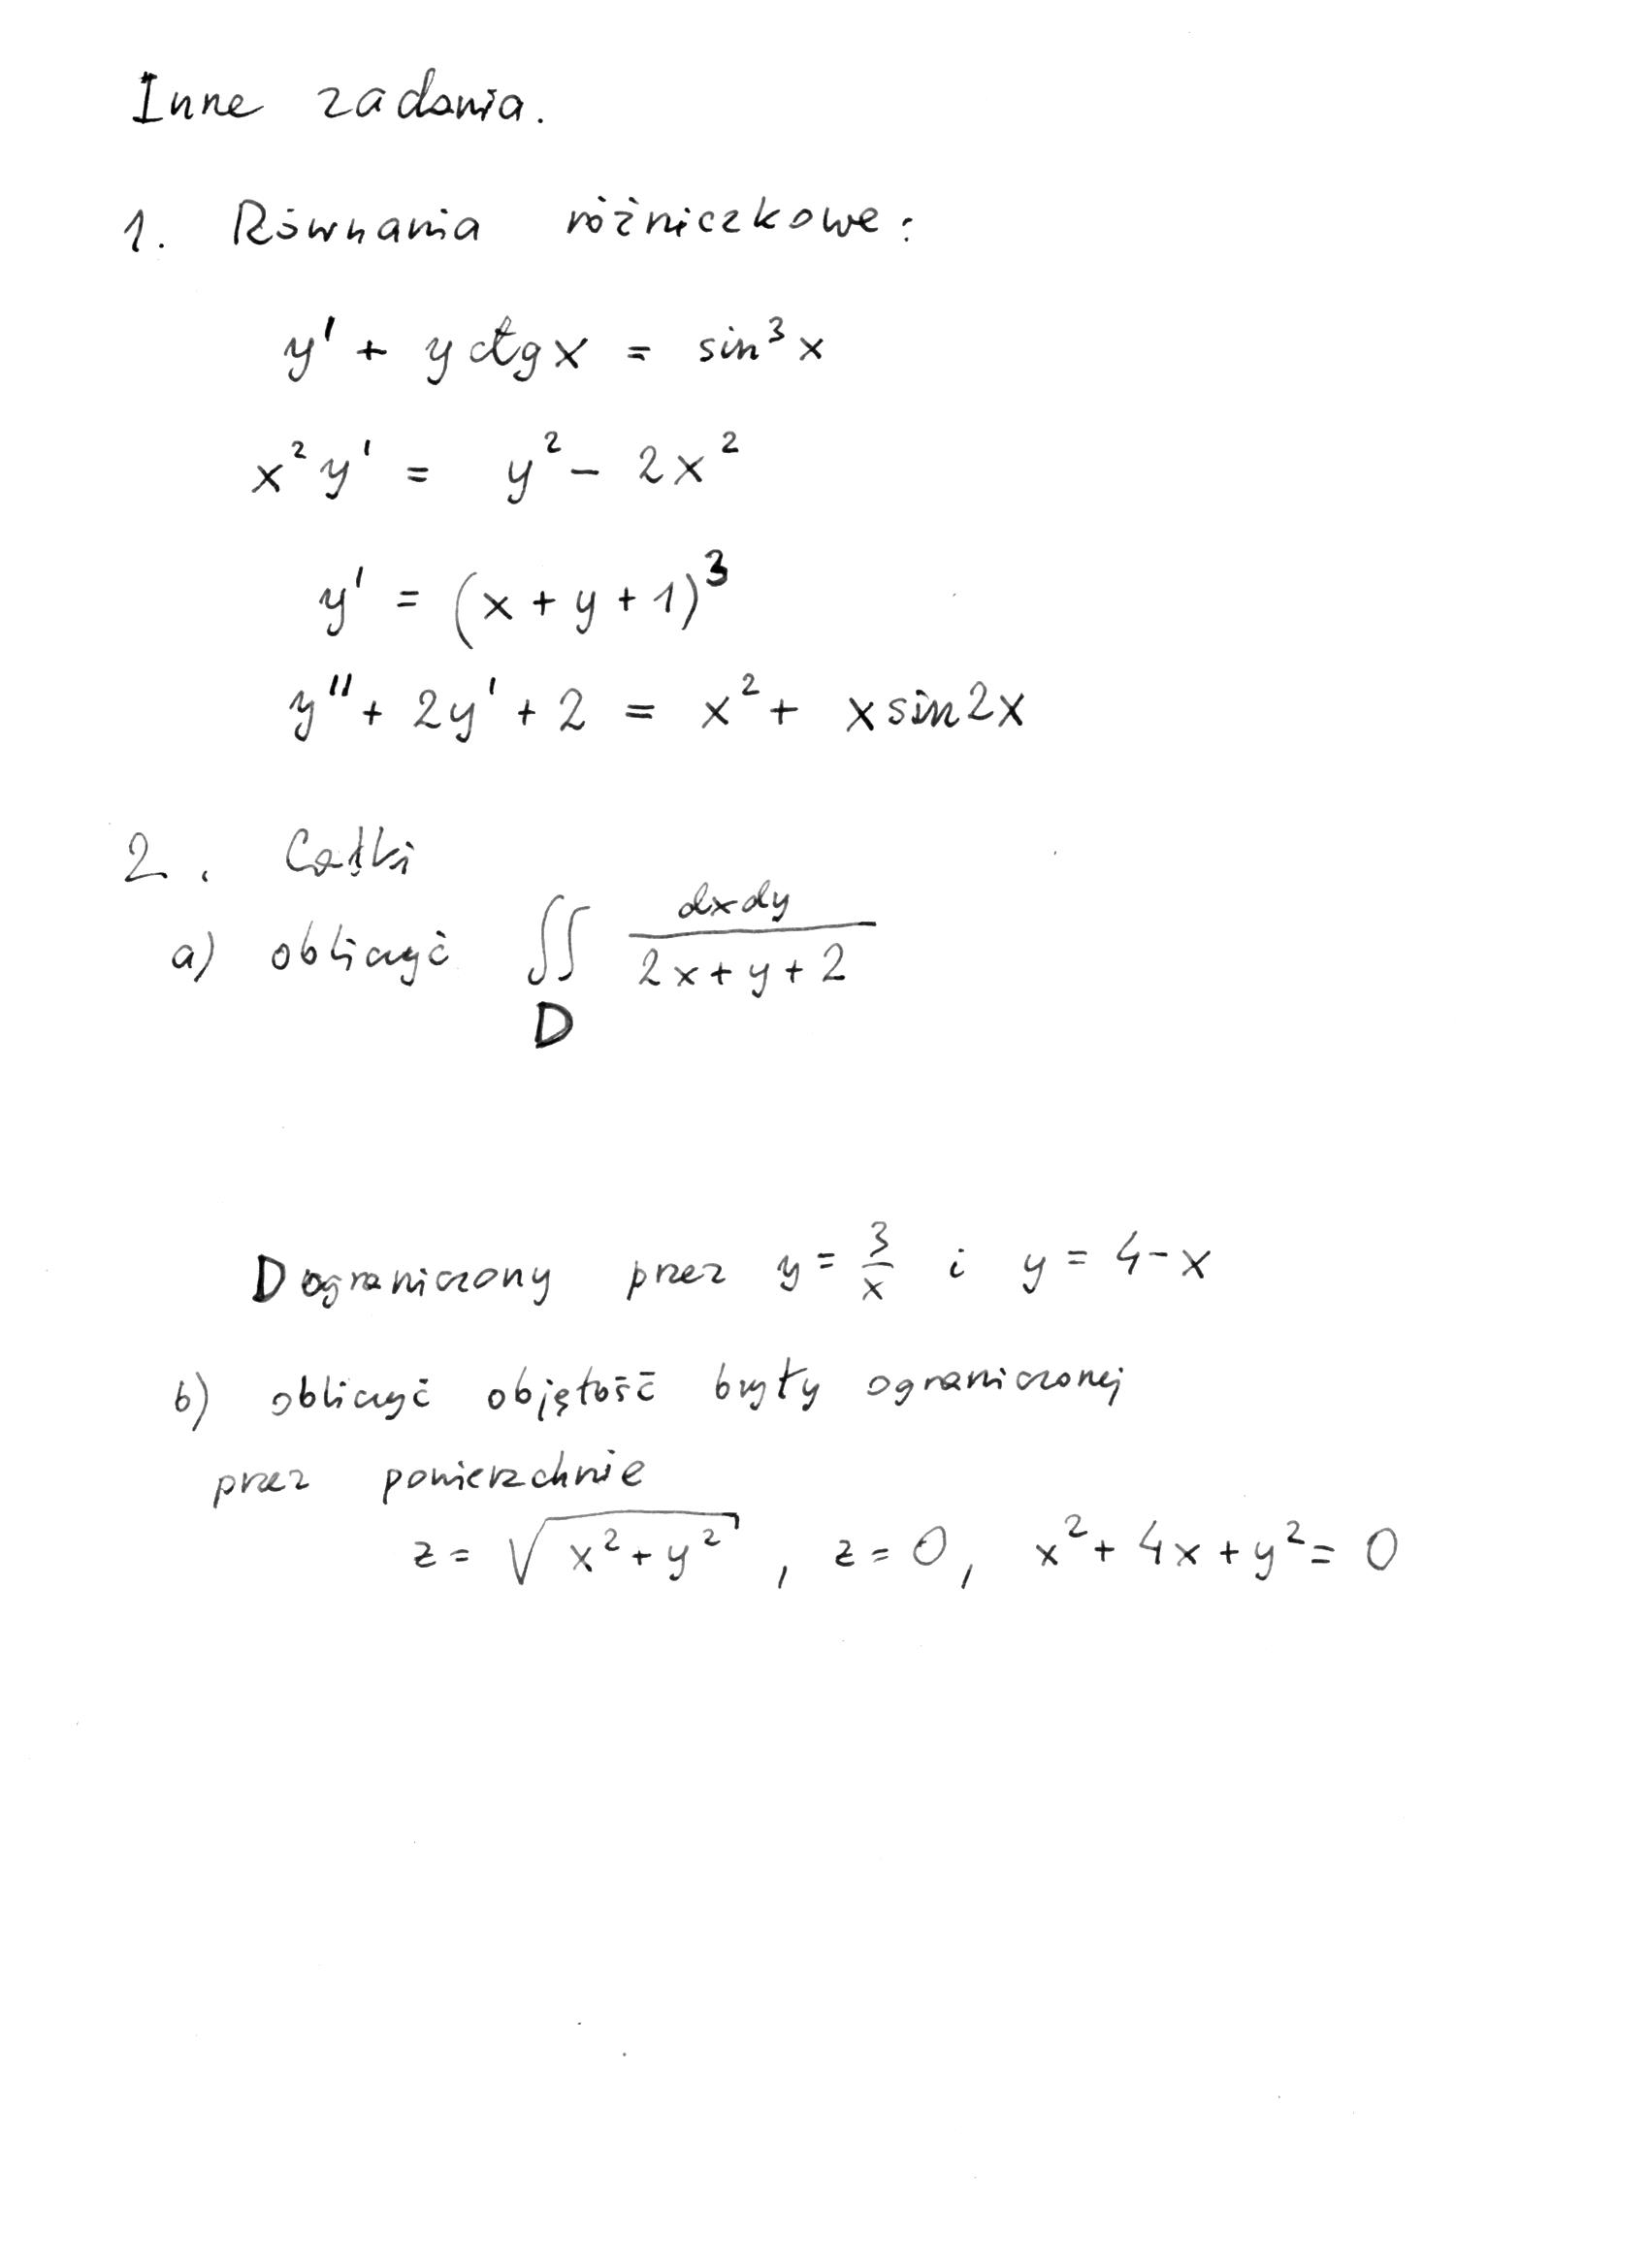 Inne zadania.
1. Równania różniczkowe:
y' + y ctg x = sin³x
x²y' = y² - 2x²
y' = (x + y + 1)³
y'' + 2y' + 2 = x² + x sin2x
2. Całki
a) obliczyć ∬_D dxdy / (2x + y + 2)
D ograniczony przez y = 3/x i y = 4 - x
b) obliczyć objętość bryły ograniczonej
przez powierzchnie
z = √(x² + y²), z = 0, x² + 4x + y² = 0